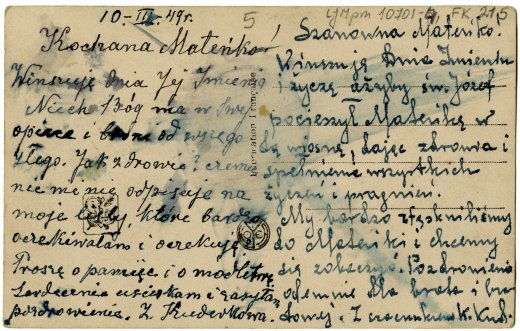 10-III-49r.
5
Kochana Mateńko!
Winszuję dnia Jej Imienia
Niech Bóg ma w Swej
opiece i broni od wszego
złego. Jak zdrowie? czemu
nic mi nie odpisuje na
moje listy, które bardzo
oczekiwałam i oczekuję
Proszę o pamięć i o modlitwę.
Serdecznie uściskam i zasyłam
pozdrowienia. Z. Kuderkowa.
Fabrication Française
LJMpm 10701- FK 215
Szanowna Mateńko.
Winszuję Dnia Imienia
i życzę ażeby św. Józef
pocieszył Mateńkę w
tą wiosnę, dając zdrowia i
spełnienie wszystkich
życzeń i pragnień.
My bardzo stęskniliśmy
do Mateńki i chcemy
się zobaczyć. Pozdrowienia
odemnie dla brata i bra
towej. - Z szacunkiem K. Kud.